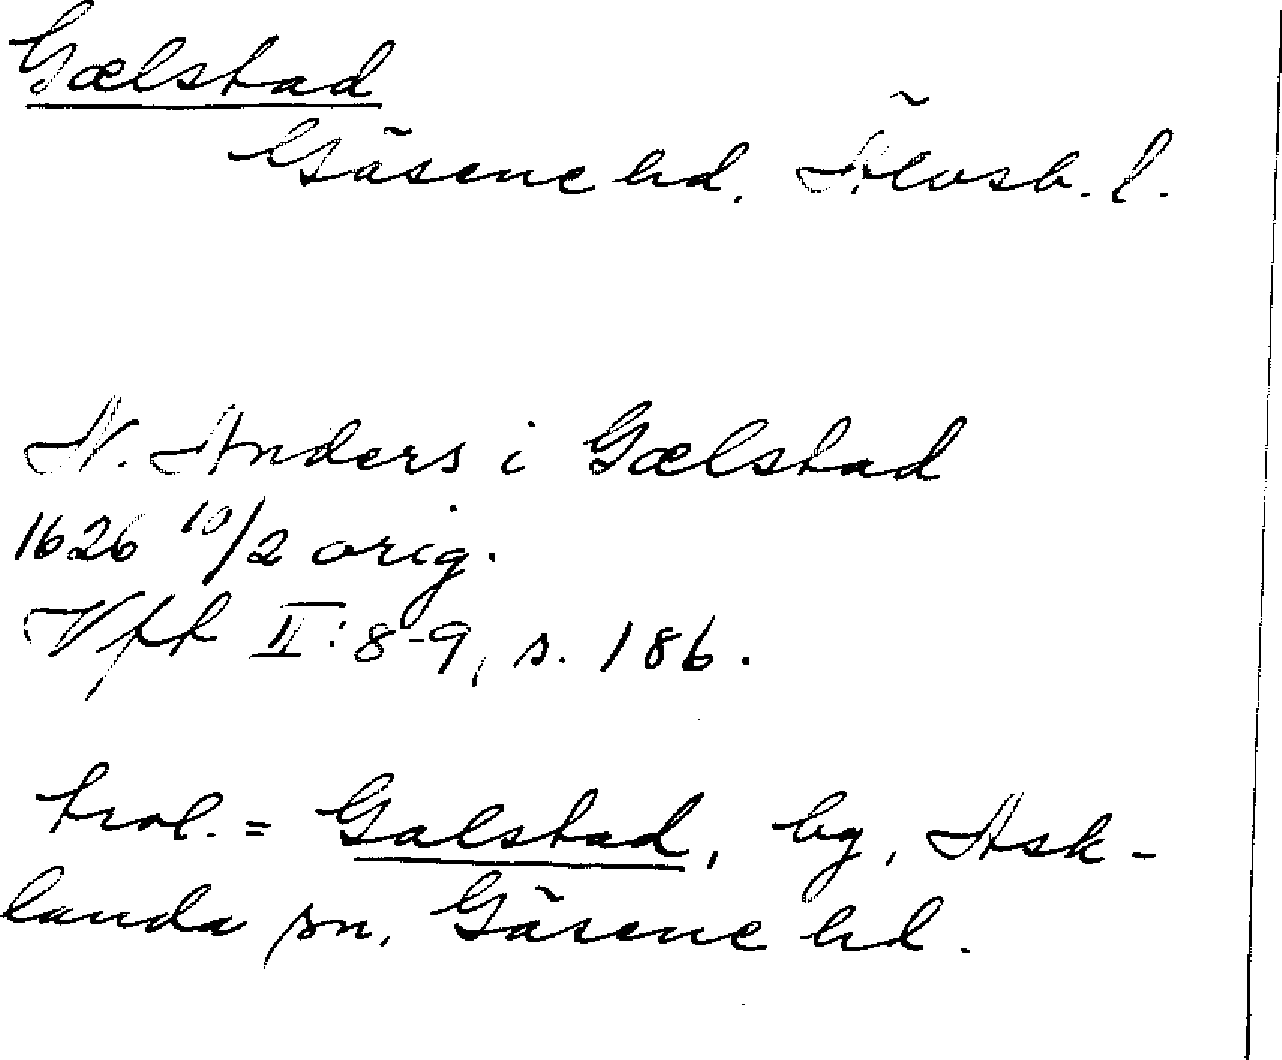 Gælstad
Gäsene hd. Älvsb. l.
N. Anders i Gælstad
1626 10/2 orig.
Vff II:8-9, s. 186.
trol. = Galstad, by, Ask-
landa sn, Gäsene hd.